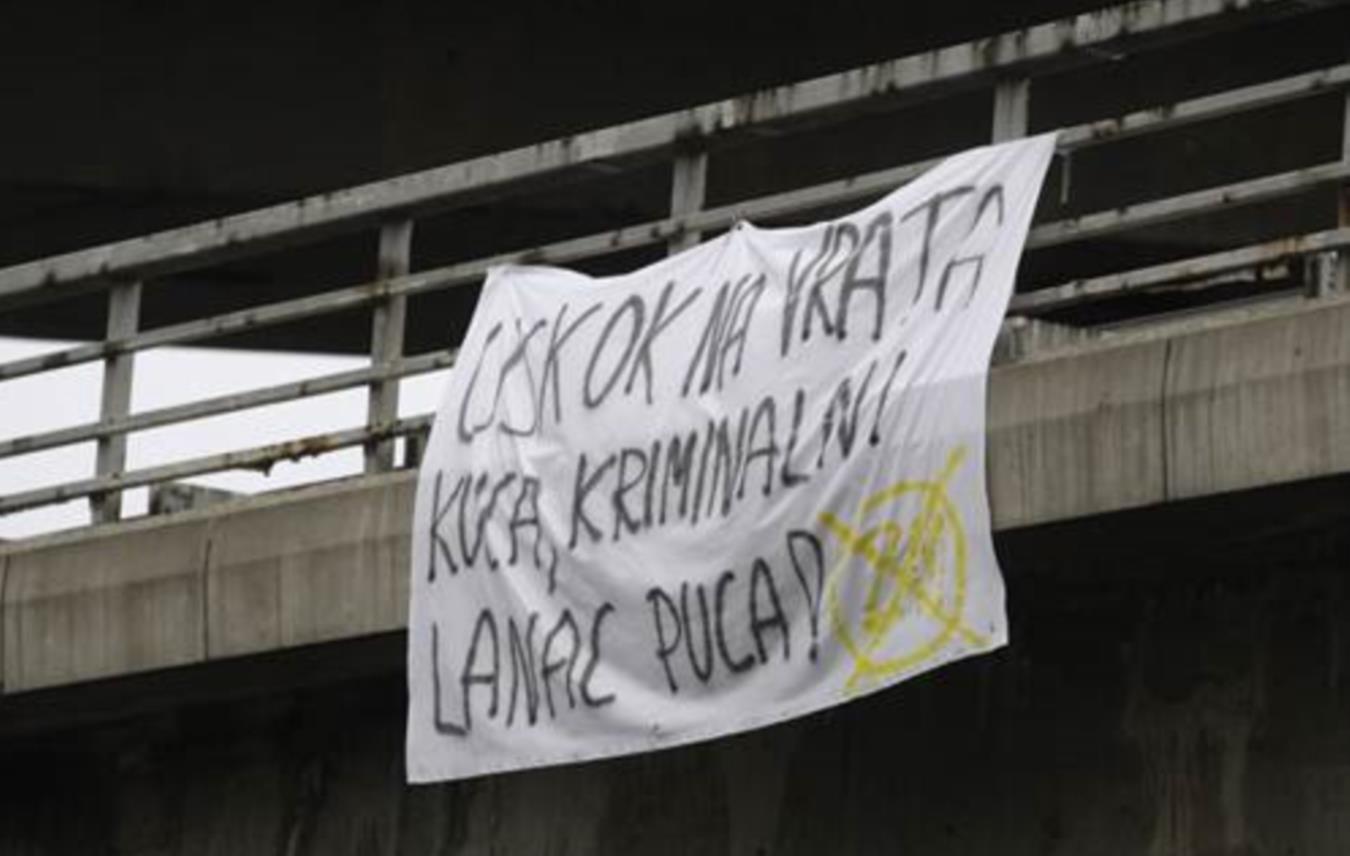 USKOK NA VRATA
KUCA, KRIMINALNI
LANAC PUCA!